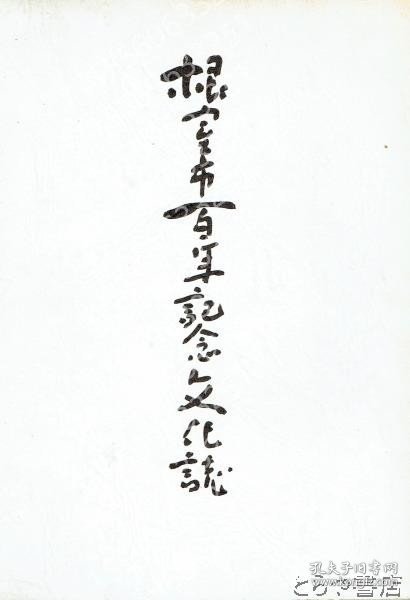 根室市百年記念文化誌
孔夫子旧书网
とらや書店